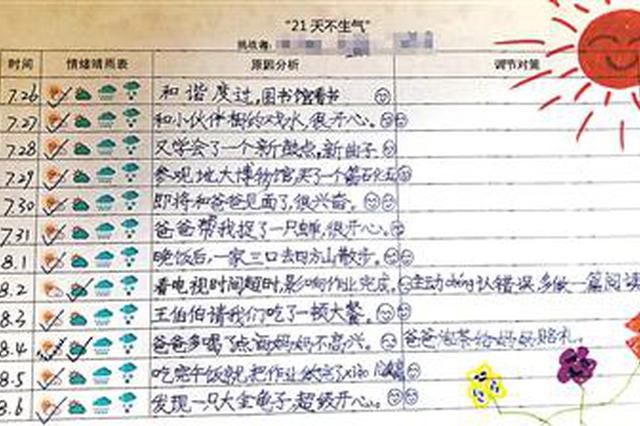 "21天不生气"
挑战者:
时间 情绪晴雨表 原因分析 调节对策
7.26 和谐度过,图书馆看书
7.27 和小伙伴相约戏水,很开心。
7.28 又学会了一个新鼓点,新曲子
7.29 参观地大博物馆买了一个
7.30 即将和爸爸见面了,很兴奋。
7.31 爸爸帮我捉了一只蝉,很开心。
8.1 晚饭后,一家三口去四方山散步。
8.2 看电视时间超时,影响作业完成。 主动 认错误,多做一篇阅读
8.3 王伯伯请我们吃了一顿大餐。
8.4 爸爸多喝了点酒妈妈不高兴。 爸爸泡茶给妈妈赔礼。
8.5 吃完午饭就把作业做完了
8.6 发现一只大金龟子,超级开心。